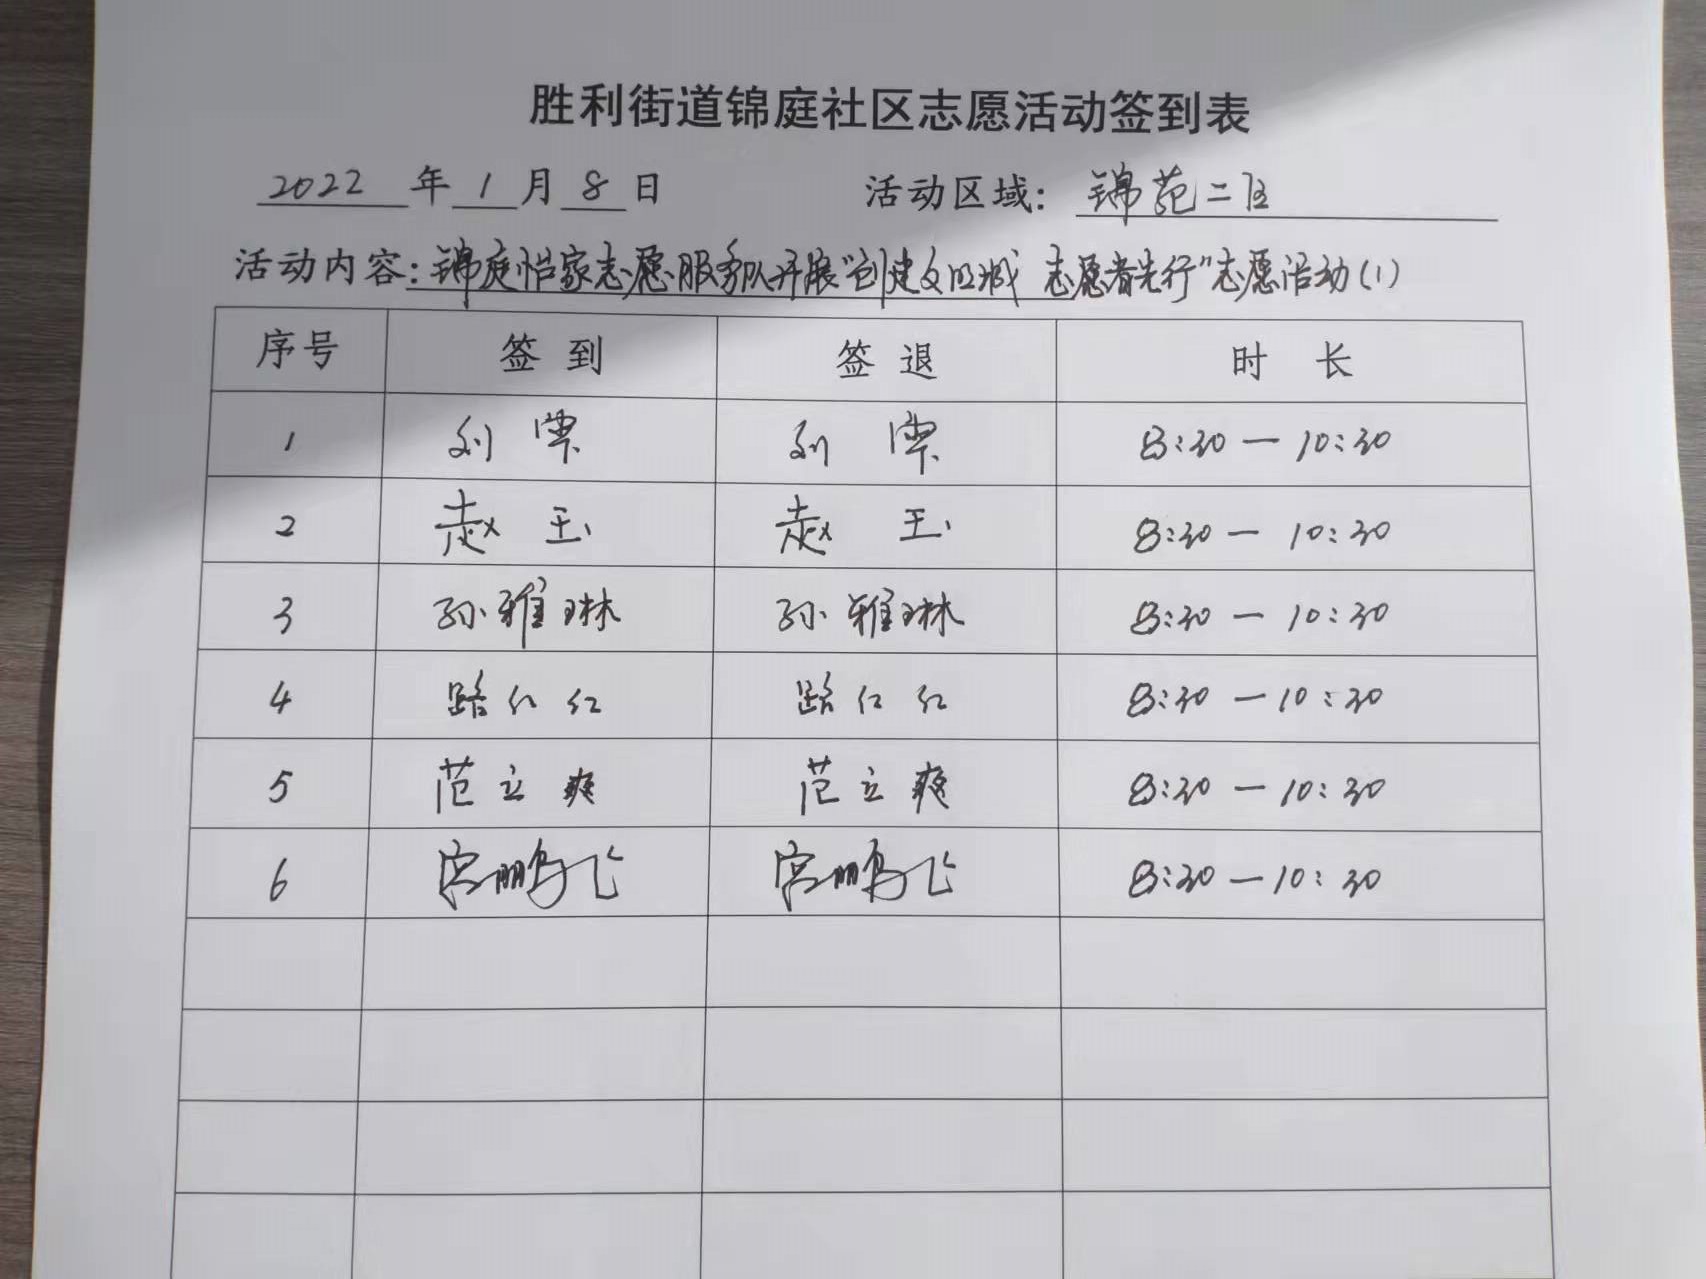 胜利街道锦庭社区志愿活动签到表
2022 年 1 月 8 日 活动区域: 锦苑二区
活动内容: 锦庭怡家志愿服务队开展"创建文明城 志愿者先行"志愿活动(1)
序号 签到 签退 时长
1 刘 刘 8:30 — 10:30
2 赵玉 赵玉 8:30 — 10:30
3 孙雅琳 孙雅琳 8:30 — 10:30
4 路红红 路红红 8:30 — 10:30
5 范立爽 范立爽 8:30 — 10:30
6 宫鹏飞 宫鹏飞 8:30 — 10:30